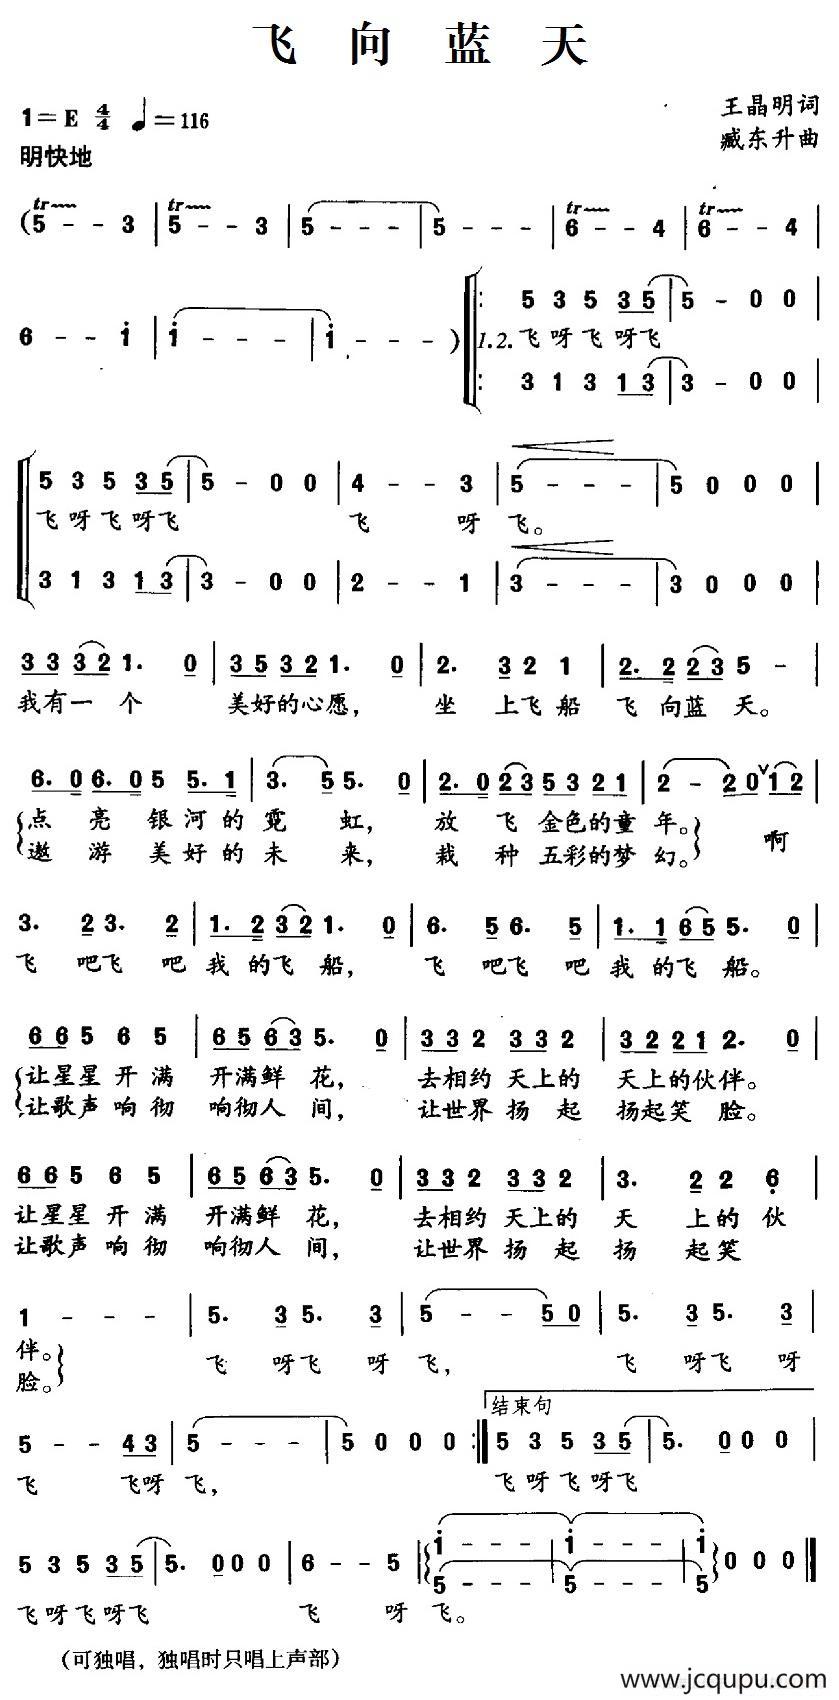 飞 向 蓝 天
1=E 4/4 ♩=116
王晶明词
臧东升曲
明快地
tr tr tr tr
(5 - - 3 | 5 - - 3 | 5 - - - | 5 - - - | 6 - - 4 | 6 - - 4 |
6 - - i | i - - - | i - - - )
5 3 5 3 5 | 5 - 0 0 |
1.2.飞 呀 飞 呀 飞
3 1 3 1 3 | 3 - 0 0 |
5 3 5 3 5 | 5 - 0 0 | 4 - - 3 | 5 - - - | 5 0 0 0 |
飞 呀 飞 呀 飞 飞 呀 飞。
3 1 3 1 3 | 3 - 0 0 | 2 - - 1 | 3 - - - | 3 0 0 0 |
3 3 3 2 1. 0 | 3 5 3 2 1. 0 | 2. 3 2 1 | 2. 2 2 3 5 - |
我有一 个 美好的心愿, 坐 上飞 船 飞 向蓝 天。
6. 0 6. 0 5 5. 1 | 3. 5 5. 0 | 2. 0 2 3 5 3 2 1 | 2 - 2 0 ∨ 1 2 |
点 亮 银 河 的 霓 虹, 放 飞 金色的童 年。 啊
遨 游 美 好 的 未 来, 栽 种 五彩的梦 幻。
3. 2 3. 2 | 1. 2 3 2 1. 0 | 6. 5 6. 5 | 1. 1 6 5 5. 0 |
飞 吧飞 吧 我 的飞 船, 飞 吧飞 吧 我 的飞 船。
6 6 5 6 5 | 6 5 6 3 5. 0 | 3 3 2 3 3 2 | 3 2 2 1 2. 0 |
让星星 开 满 开满鲜 花, 去相约 天上的 天上的伙伴。
让歌声 响 彻 响彻人 间, 让世界 扬 起 扬起笑 脸。
6 6 5 6 5 | 6 5 6 3 5. 0 | 3 3 2 3 3 2 | 3. 2 2 6 |
让星星 开 满 开满鲜 花, 去相约 天上的 天 上的 伙
让歌声 响 彻 响彻人 间, 让世界 扬 起 扬 起笑
1 - - - | 5. 3 5. 3 | 5 - - 5 0 | 5. 3 5. 3 |
伴。 飞 呀飞 呀 飞, 飞 呀飞 呀
脸。
结束句
5 - - 4 3 | 5 - - - | 5 0 0 0 :| 5 3 5 3 5 | 5. 0 0 0 |
飞 飞呀 飞, 飞 呀 飞 呀 飞
i - - - | i - - - | i
5 3 5 3 5 | 5. 0 0 0 | 6 - - 5 | 5 - - - | 5 - - - | 5 0 0 0 ‖
飞 呀 飞 呀 飞 飞 呀 飞。
(可独唱, 独唱时只唱上声部)
www.jcqupu.com